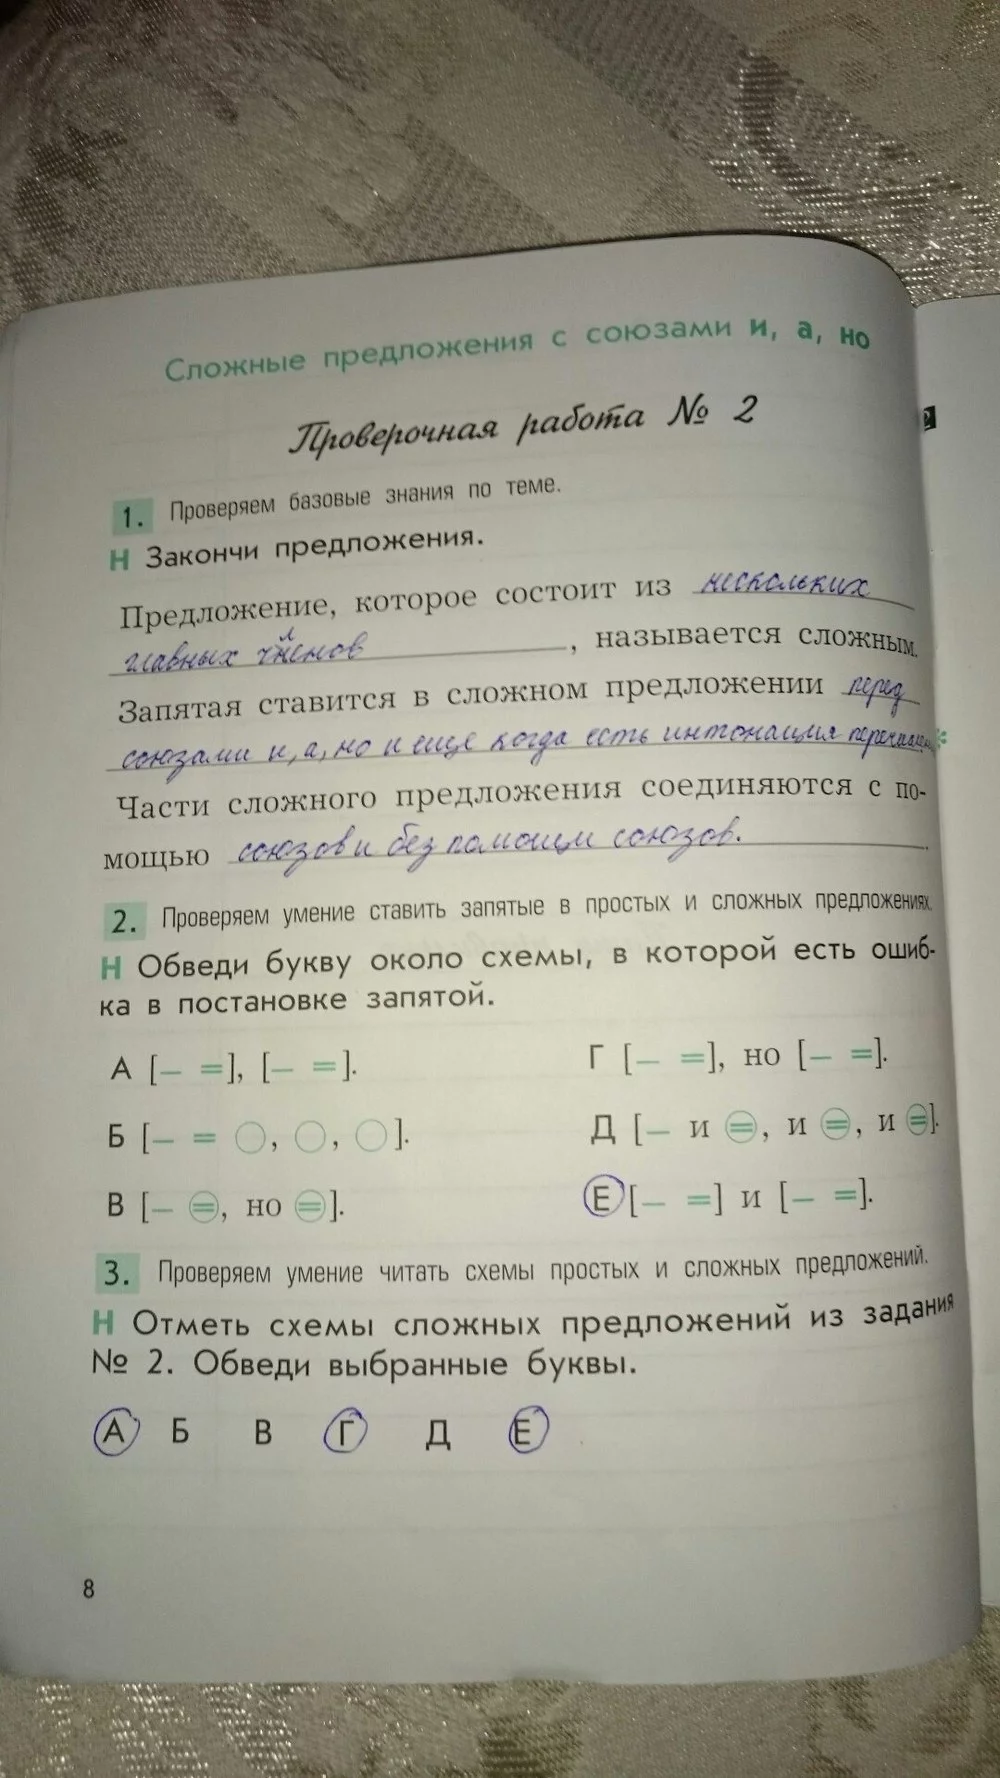 Сложные предложения с союзами и, а, но
Проверочная работа № 2
1. Проверяем базовые знания по теме.
Н Закончи предложения.
Предложение, которое состоит из нескольких
главных членов, называется сложным.
Запятая ставится в сложном предложении перед
союзами и, а, но и еще когда есть интонация
Части сложного предложения соединяются с по-
мощью союзов и без помощи союзов.
2. Проверяем умение ставить запятые в простых и сложных предложениях.
Н Обведи букву около схемы, в которой есть ошиб-
ка в постановке запятой.
А [– =], [– =].
Г [– =], но [– =].
Б [– = ○, ○, ○].
Д [– и =, и =, и =].
В [– =, но =].
Е [– =] и [– =].
3. Проверяем умение читать схемы простых и сложных предложений.
Н Отметь схемы сложных предложений из задания
№ 2. Обведи выбранные буквы.
А Б В Г Д Е
8